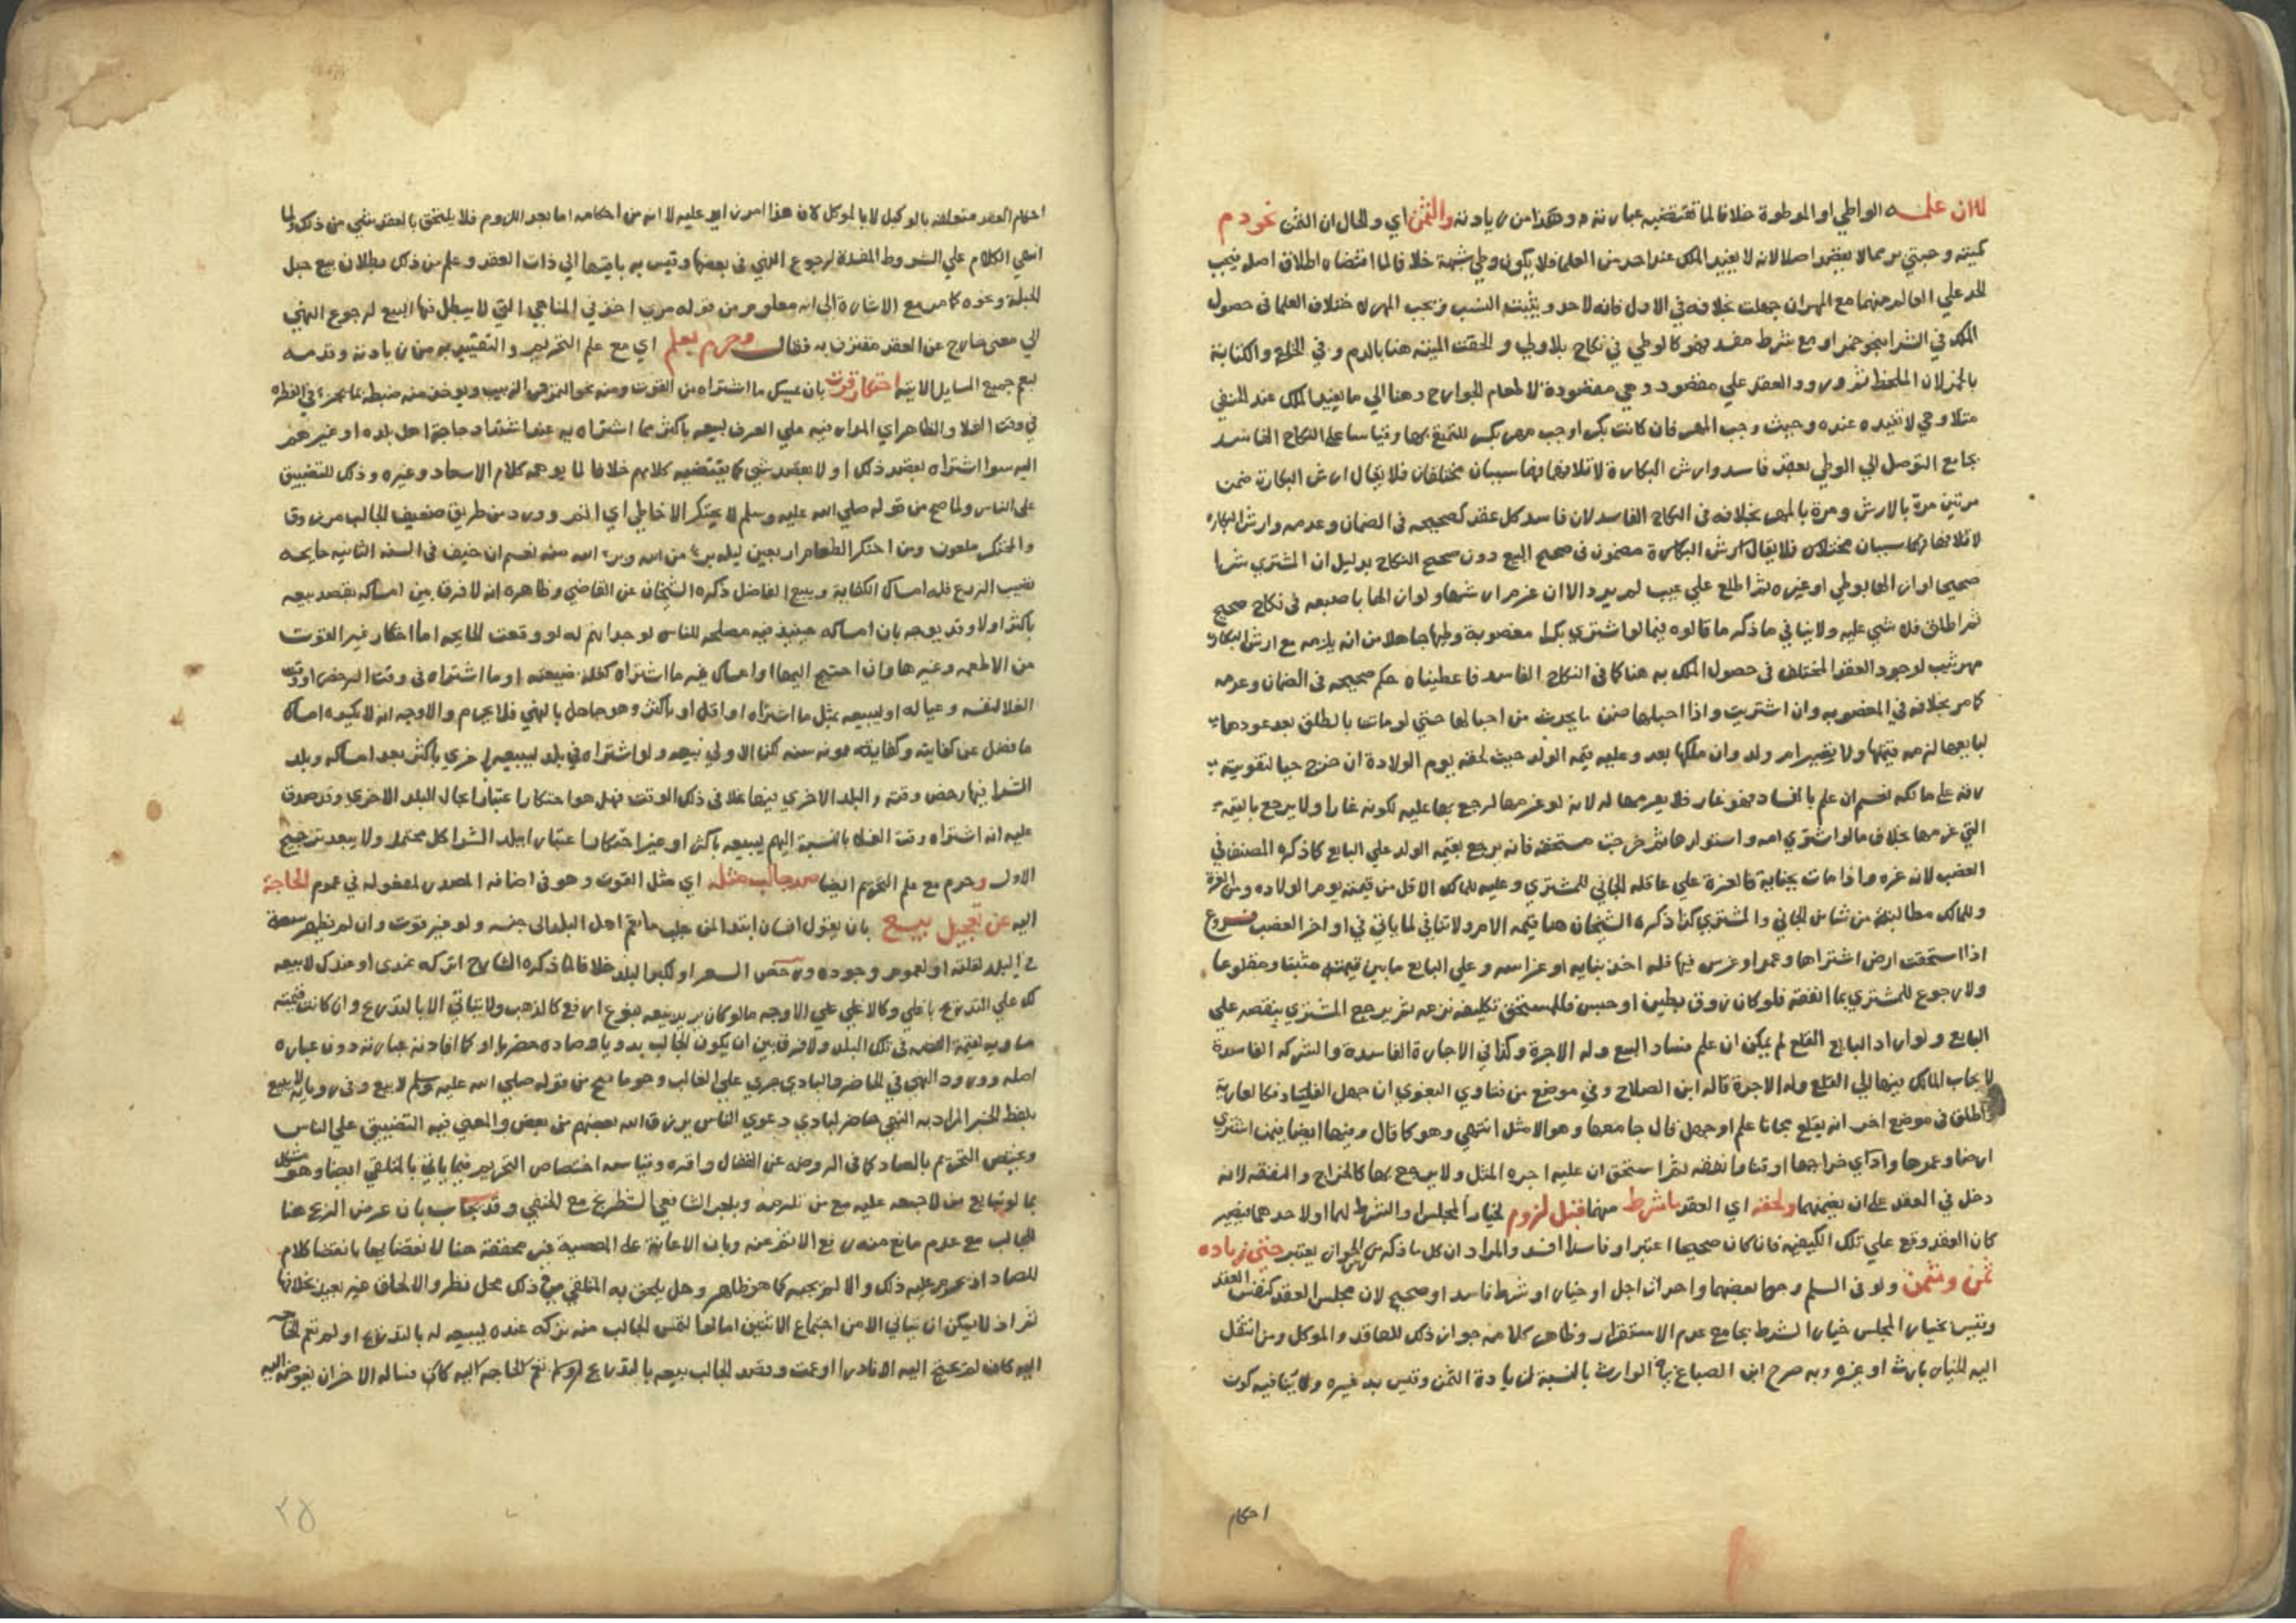 لا ان علمـه الواطي او الموطوة خلافا لما تقتضيه عبارته وهذا من زيادته والثمن اي والحال ان الثمن نحو دم
كميتة وحبتي بر مما لا يقصد اصلا لانه لا يفيد الملك عند احد من العلما فلا يكون وطي شبهة خلافا لما اقتضاه اطلاق اصله فيجب
الحد علي العالم منهما مع المهر ان جهلت بخلافه في الاول فانه لاحد ويثبت النسب ويجب المهر لاختلاف العلما في حصول
الملك في الشرا بنحو خمر او مع شرط مفسد فهو كالوطي في نكاح بلا ولي والحقت الميتة هنا بالدم وفي الخلع والكتابة
بالخمر لان الملحظ ثم ورود العقد علي مقصود وهي مقصودة لاطعام الجوارح وهنا الي ما يفيد الملك عند الحنفي
مثلا وهي لا تفيده عنده وحيث وجب المهر فان كانت بكرا وجب مهر بكر للتمتع بها وقياسا علي النكاح الفاسد
بجامع التوصل الي الوطي بعقد فاسد وارش البكارة لاتلافها فهما سببان مختلفان فلا يقال ارش البكارة ضمن
مرتين مرة بالارش ومرة بالمهر بخلافه في النكاح الفاسد لان فاسد كل عقد كصحيحه في الضمان وعدمه وارش البكارة
لاتلافها فهما سببان مختلفان فلا يقال ارش البكارة مضمون في صحيح البيع دون صحيح النكاح بدليل ان المشتري شرا
صحيحا لو ازالها بوطي او غيره ثم اطلع علي عيب لم يرد الا ان غرم ارشها ولو ازالها باصبعه في نكاح صحيح
ثم اطلق فلا شي عليه ولا ينافي ما ذكر ما قالوه فيما لو اشتري بكرا مغصوبة وطيها جاهلا من انه يلزمه مع ارش البكارة
مهر ثيب لوجود العقد المختلف في حصول الملك به هنا كما في النكاح الفاسد فاعطيناه حكم صحيحه في الضمان وعدمه
كما مر بخلافه في المغصوبة وان اشتريت واذا احبلها ضمن ما يحدث من احبالها حتي لو ماتت بالطلق بعد عودها
لبايعها لزمه قيمتها ولا تصير ام ولد وان ملكها بعد وعليه قيمة الولد حيث لحقه يوم الولادة ان خرج حيا لتفويته
رقه علي مالكه نعم ان علم بالفساد فهو غار فلا يغرمها له لانه لو غرمها لرجع بها عليه لكونه غارا ولا يرجع بالقيمة
التي غرمها بخلاف ما لو اشتري امه واستولدها ثم خرجت مستحقة فانه يرجع بقيمة الولد علي البايع كما ذكره المصنف في
الغصب لانه غره واذا مات بجناية فالغرة علي عاقلة الجاني للمشتري وعليه للمالك الاقل من قيمته يوم الولادة ومن الغرة
وللمالك مطالبة من شا من الجاني والمشتري كذا ذكره الشيخان هنا قيمة الام ولا ينافي لما ياتي في اواخر الغصب فـرع
اذا استحقت ارض اشتراها وعمر او غرس فيها فله اخذ بنايه او غراسه وعلي البايع ما بين قيمته مثبتا ومقلوعا
ولا رجوع للمشتري بما انفقه فلو كان زوق بطين او جبس فللمستحق تكليفه نزعه ثم يرجع المشتري بنقصه علي
البايع ولو اراد البايع القلع لم يمكن ان علم فساد البيع وله الاجرة وكذا في الاجارة الفاسدة والشركه الفاسدة
لا يجاب المالك فيها الي القلع وله الاجرة قاله ابن الصلاح وفي موضع من فتاوي البغوي ان جهل الفساد فكالعارية
واطلق في موضع اخر انه يقلع مجانا علم او جهل قال جامعها وهو الامثل انتهي وهو كما قال وفيها ايضا فيمن اشتري
ارضا وعمرها وادي خراجها او قنا وانفقه ثم استحق ان عليه اجرة المثل ولا يرجع بها كالخراج والنفقه لانه
دخل في العقد علي ان يضمنهما ولحقه اي العقد ما شرط منهما قبل لزوم لخيار المجلس والشرط لهما او لاحدهما فيصير
كان العقد وقع علي تلك الكيفية فان كان صحيحا اعتبر او فاسدا افسد والمراد ان كل ما ذكر من الجواز يعتبر حتي زيادة
ثمن ومثمن ولو في السلم وحط بعضهما واحداث اجل او خيار او شرط فاسد او صحيح لان مجلس العقد كنفس العقد
وقيس بخيار المجلس خيار الشرط بجامع عدم الاستقرار وظاهر كلامه جواز ذلك للعاقد والموكل ومن انتقل
اليه الخيار بارث او غيره وبه صرح ابن الصباغ في الوارث بالنسبة لزيادة الثمن وقيس به غيره ولا ينافيه كون
احكام
احكام العقد متعلقة بالوكيل لا بالموكل لان هذا امر زايد عليه لا انه من احكامه اما بعد اللزوم فلا يلتحق بالعقد شي من ذلك ولما
انهي الكلام علي الشروط المفسدة لرجوع النهي في بعضها وقيس به باقيها الي ذات العقد وعلم من ذلك بطلان بيع حبل
الحبلة ونحوه كما مر مع الاشارة الي انه معلوم من قوله مريد اخذ في المناهي التي لا يبطل فيها البيع لرجوع النهي
الي معني خارج عن العقد مقترن به فقال وحرم بعلم اي مع علم التحريم والتقييد به من زيادته وقدمه
ليعم جميع المسايل الاتية احتكار قوت بان يمسك ما اشتراه من القوت ومنه نحو التمر والزبيب ويوخذ منه ضبطه بما يجزي في الفطرة
في وقت الغلا والظاهر اي المدار فيه علي العرف ليبيعه باكثر مما اشتراه به عند اشتداد حاجة اهل بلده او غيرهم
اليه سوا اشتراه بقصد ذلك او لا بقصد شي كما يقتضيه كلامهم خلافا لما يوهمه كلام الاسعاد وغيره وذلك للتضييق
علي الناس ولما صح من قوله صلي الله عليه وسلم لا يحتكر الا خاطي اي اثم وورد من طريق ضعيف الجالب مرزوق
والمحتكر ملعون ومن احتكر الطعام اربعين ليلة بري من الله وبري الله منه نعم ان خيف في السنة الثانية جايحه
تصيب الزرع فله امساك الكفاية ويبيع الفاضل ذكره الشيخان عن القاضي وظاهره انه لا فرق بين امساكه بقصد بيعه
باكثر او لا وقد يوجه بان امساكه حينيذ فيه مصلحه للناس لوجدانهم له لو وقعت الجايحه اما احتكار غير القوت
من الاطعمه وغيرها وان احتيج اليها او امساك غير ما اشتراه كغلة ضيعته او ما اشتراه في وقت الرخص او وقت
الغلا لنفسه وعياله او ليبيعه بمثل ما اشتراه او اقل او باكثر وهو جاهل بالنهي فلا يحرم والاوجه انه لا يكره امساك
ما فضل عن كفايته وكفاية ممونه سنه لكن الاولي بيعه ولو اشتراه في بلد ليبيعه باخري باكثر بعد امساكه وبلد
الشرا فيها رخص وقته والبلد الاخري فيها غلا في ذلك الوقت فهل هو احتكار اعتبارا بحال البلد الاخري وقد صدق
عليه انه اشتراه وقت الغلا بالنسبة اليهم ليبيعه باكثر او غير احتكار اعتبارا ببلد الشرا كل محتمل ولا يبعد ترجيح
الاول وحرم مع علم التحريم ايضا صد جالب مثله اي مثل القوت وهو في اضافة المصدر لمفعوله في عموم الحاجة
اليه عن تعجيل بيع بان يقول انسان ابتدا لمن جلب ما تعم اهل البلد الي جنسه ولو غير قوت وان لم يظهر سعة
في البلد لقلته او لعموم وجوده ورخص السعر او لكبر البلد خلافا لما ذكره الشارح اتركه عندي او عندك لابيعه
لك علي التدريج باغلي وكالاغلي علي الاوجه ما لو كان يريد بيعه بنوع ارفع كالذهب ولا يتاتي الا بالتدريج وان كانت قيمته
مساويه لقيمة الفضة في تلك البلد ولا فرق بين ان يكون الجالب بدويا وصاده حضريا او كما افادته عبارته دون عبارة
اصله وورود النهي في الحاضر والبادي جري علي الغالب وهو ما صح من قوله صلي الله عليه وسلم لا يبيع وفي رواية لا يبع
بلفظ الخبر المراد به النهي حاضر لبادي دعوي الناس يرزق الله بعضهم من بعض والمعني فيه التضييق علي الناس
ويختص التحريم بالصاد كما في الروضه عن القفال واقره وقياسه اختصاص التحريم فيما ياتي بالمتلقي ايضا وهو مشكل
بما لو تبايع من لا جمعه عليه مع من تلزمه وبلعب الشافعي الشطرنج مع الحنفي وقد يجاب بان غرض الربح هنا
للجالب مع عدم مانع منه رفع الاثم عنه وبان الاعانة علي المعصية غير محققة هنا لانقضايها بانقضا كلام
الصاد اذ تحرم عليه ذلك والا لم يجبه كما هو ظاهر وهل يلحق به المتلقي في ذلك محل نظر والالحاق غير بعيد بخلافها
ثم اذ لا يمكن ان يتاتي الا من اجتماع الاثنين اما لو التمس الجالب منه تركه عنده ليبيعه له بالتدريج او لم تعم الحاجه
اليه كان لم يحتج اليه الا نادرا او عمت وقصد الجالب بيعه بالتدريج او لم تعم الحاجه اليه كان فساله الاخر ان يفوضه اليه
٢٥